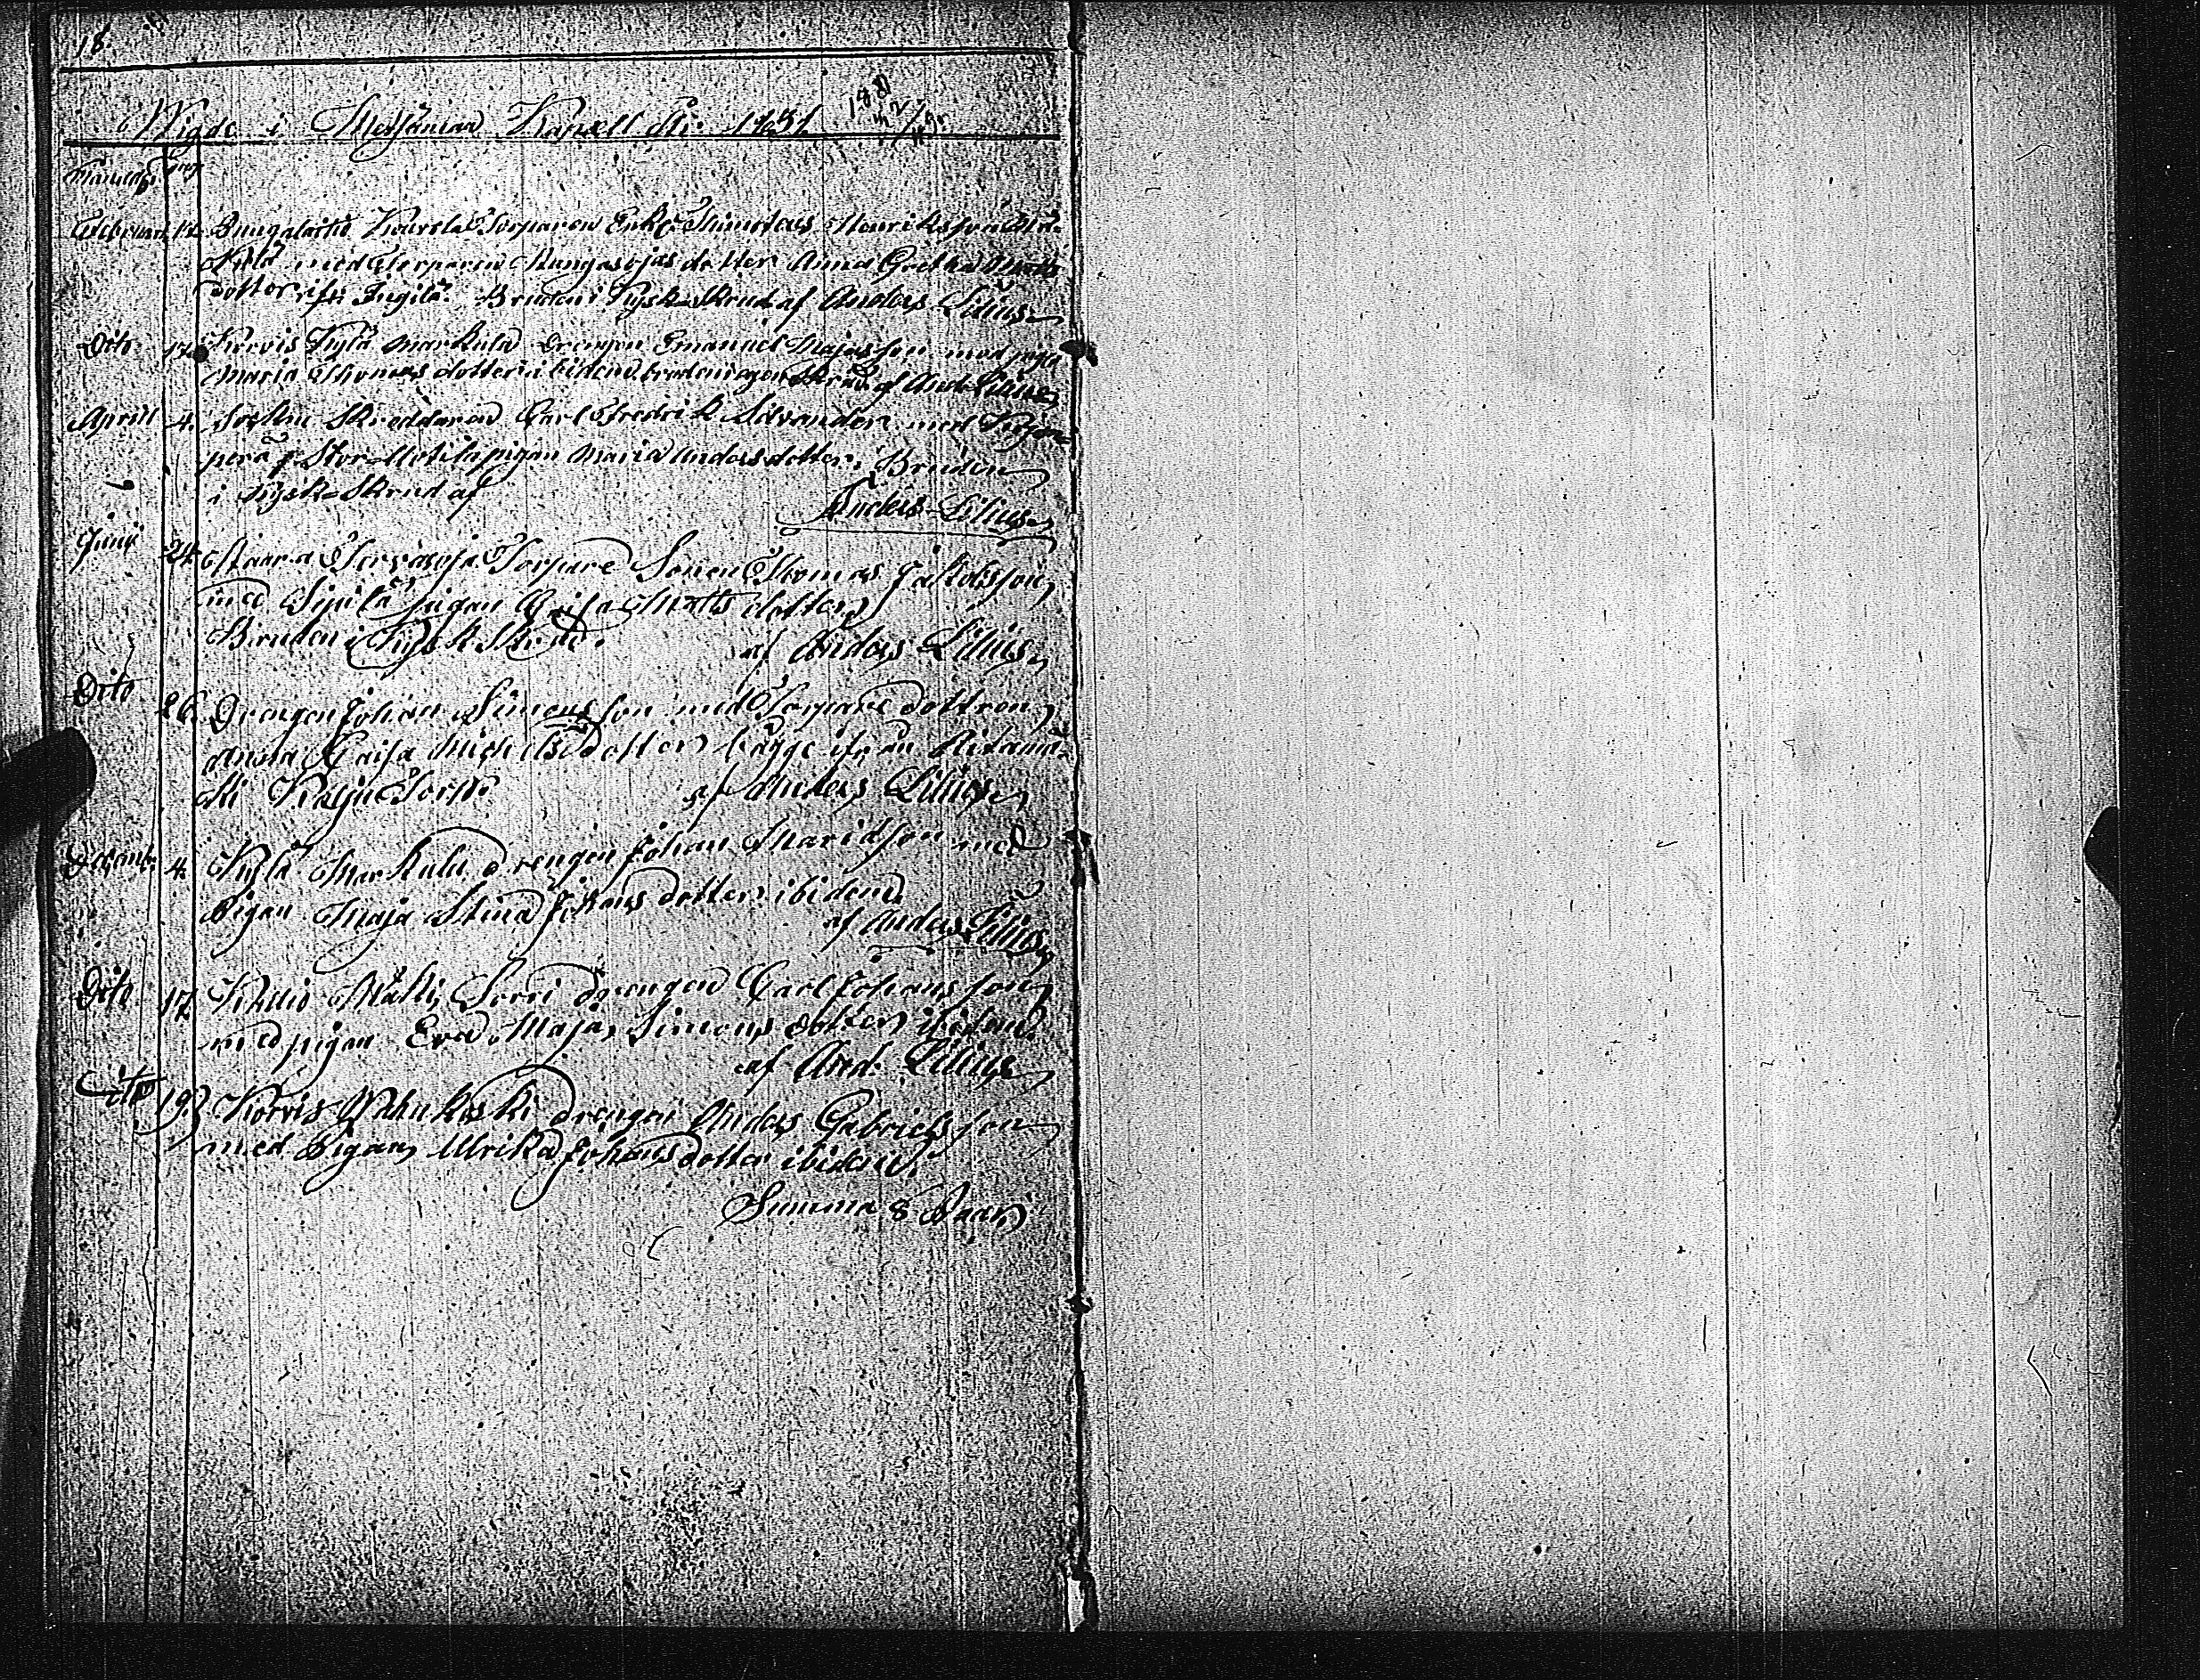 18.
Wigde i Metsämaa Kapell År 1831.
Månad. Dag
Februari 12. Knuralaisto Torparen Enkl. Thimoteus Henriksson
Kylä med Torparen Kangasojas dotter Anna Greta Matts
dotter ifr. Jugilä. Bruden i Kyrk-Skrud af Anders Lilius.
Dito 17. Korvis Kylä Markula Drengen Emanuel Majasson med piga
Maria Thomas dotter ibidem, bruden egen Skrud af And. Lilius
Aprill 4. Sockne Skreddaren Carl Fredrik Silvander med
perä Stor-Uotila pigan Maria Anders dotter, Bruden
i Kyrk-Skrud af
Anders Lilius.
Junij 24. Torpare Sonen Thomas Jakobsson,
med Sipilä pigan Caisa Matts dotter,
Bruden i Kyrk Skrud.
af Anders Lilius,
Dito 26. Drengen Johan Simonsson med Torpare dottren,
Anna Caisa Michelsdotter bägge ifrån Ritamä-
ki Korju Torp.
af Anders Lilius,
Decemb. 4. Kylä Markula drengen Johan Mariasson med
Pigan Maja Stina Johansdotter ibidem.
af Anders Lilius,
Dito 17. Matti Sorri drengen Carl Johansson
med pigan Eva Maja Simons dotter ibidem.
af And. Lilius
Dito 19. Korvis Wahukoski drengen Anders Gabrielsson
med Pigan Ulrika Johansdotter ibidem.
Summa 8 Paar.